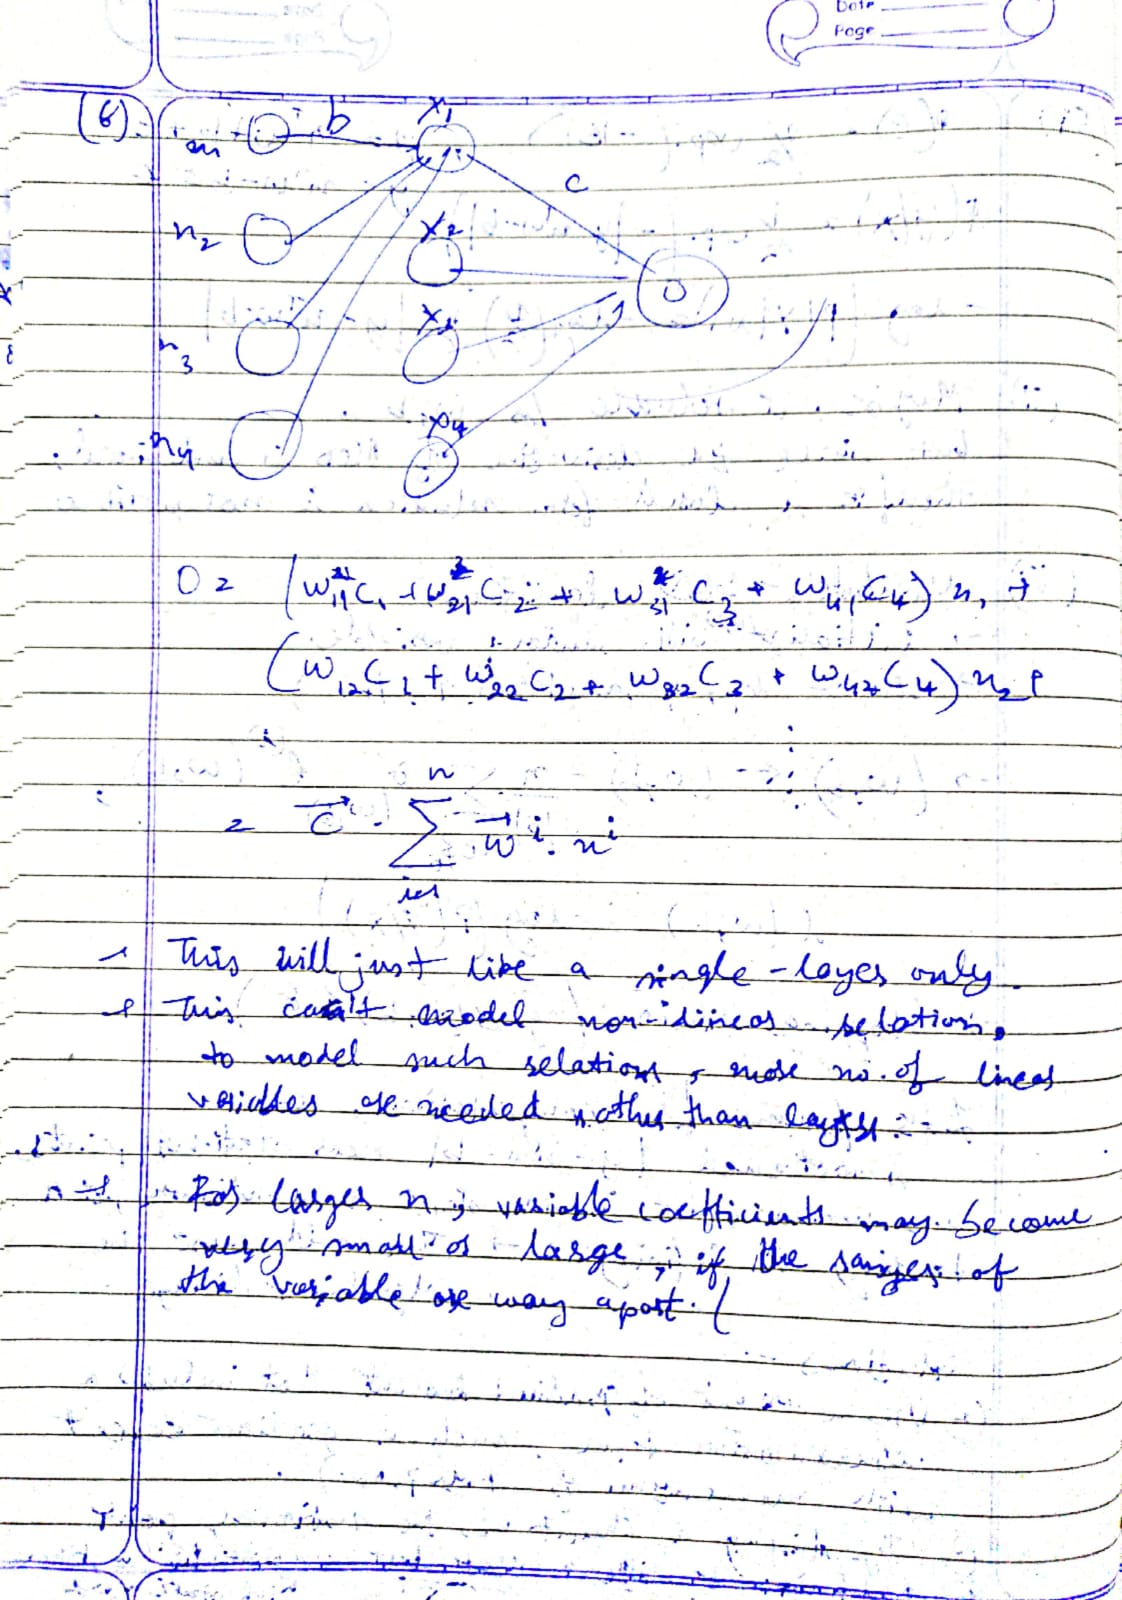 Date
Page
(6)
x₁ b X₁
c
x₂ X₂
O
x₃ X₃
x₄ X₄
O = (w₁₁C₁ + w₂₁C₂ + w₃₁C₃ + w₄₁C₄) x₁ +
(w₁₂C₁ + w₂₂C₂ + w₃₂C₃ + w₄₂C₄) x₂ +
n
= C⃗ · Σ w⃗ⁱ · xⁱ
i=1
This will just like a single-layer only.
This can't model non-linear relation,
to model such relations, more no. of linear
variables are needed rather than layers.
For larger n, variable coefficients may become
very small or large, if the ranges of
the variable are way apart. (